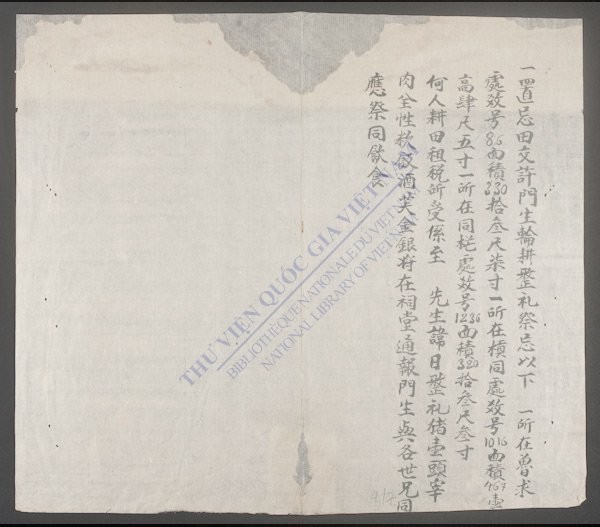 一置忌田交許門生輪耕整礼祭忌以下 一所在魯求
處效号86面積330拾叁尺柒寸一所在横同處效号1016面積469壹
高肆尺五寸一所在同椛處效号1236面積380拾叁尺叁寸
何人耕田租税所受係至 先生諱日整礼猪壹頭宰
肉全性粢盛酒芙金銀将在祠堂通報門生與各世兄同
應祭同飲食
THƯ VIỆN QUỐC GIA VIỆT NAM
BIBLIOTHÈQUE NATIONALE DU VIETNAM
NATIONAL LIBRARY OF VIETNAM